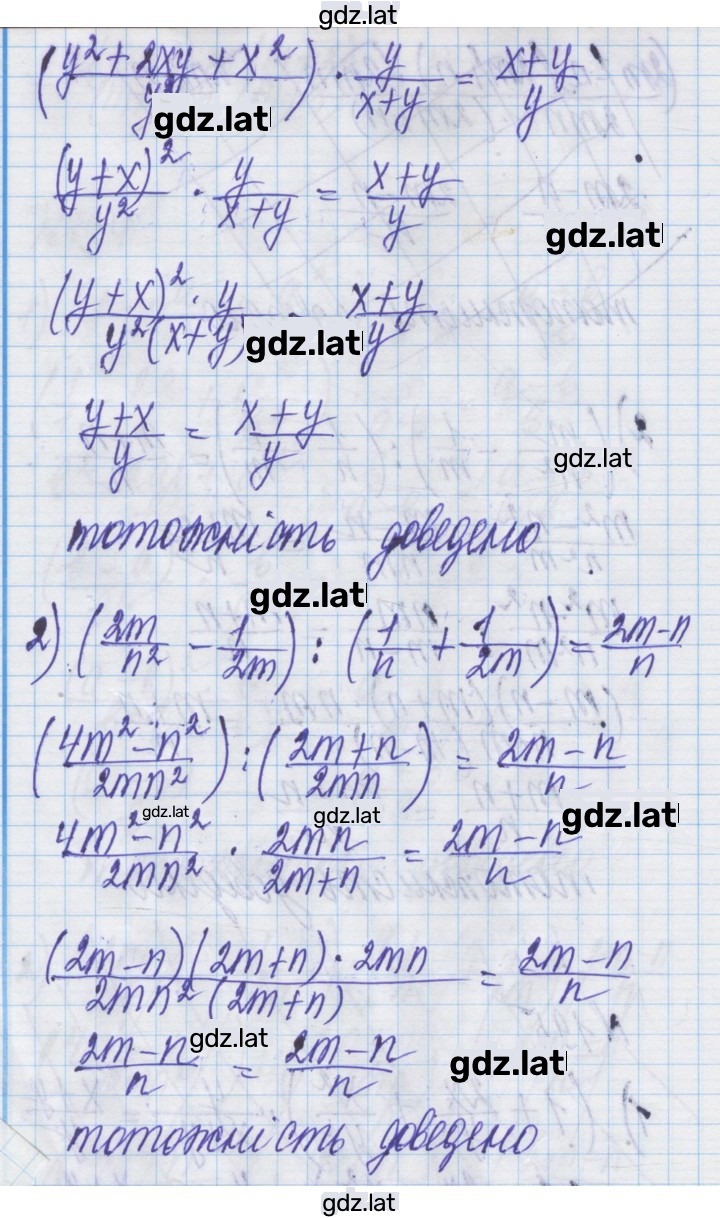 gdz.lat
(y² + 2xy + x² / y²) · y / x+y = x+y / y
gdz.lat
(y+x)² / y² · y / x+y = x+y / y
gdz.lat
(y+x)² · y / y²(x+y) x+y / y
gdz.lat
y+x / y = x+y / y
gdz.lat
тотожність доведено
gdz.lat
2) (2m / n² - 1 / 2m) : (1 / n + 1 / 2m) = 2m-n / n
(4m²-n² / 2mn²) : (2m+n / 2mn) = 2m-n / n
gdz.lat gdz.lat gdz.lat
4m²-n² / 2mn² · 2mn / 2m+n = 2m-n / n
(2m-n)(2m+n)·2mn / 2mn²(2m+n) = 2m-n / n
gdz.lat
2m-n / n = 2m-n / n
gdz.lat
тотожність доведено
gdz.lat